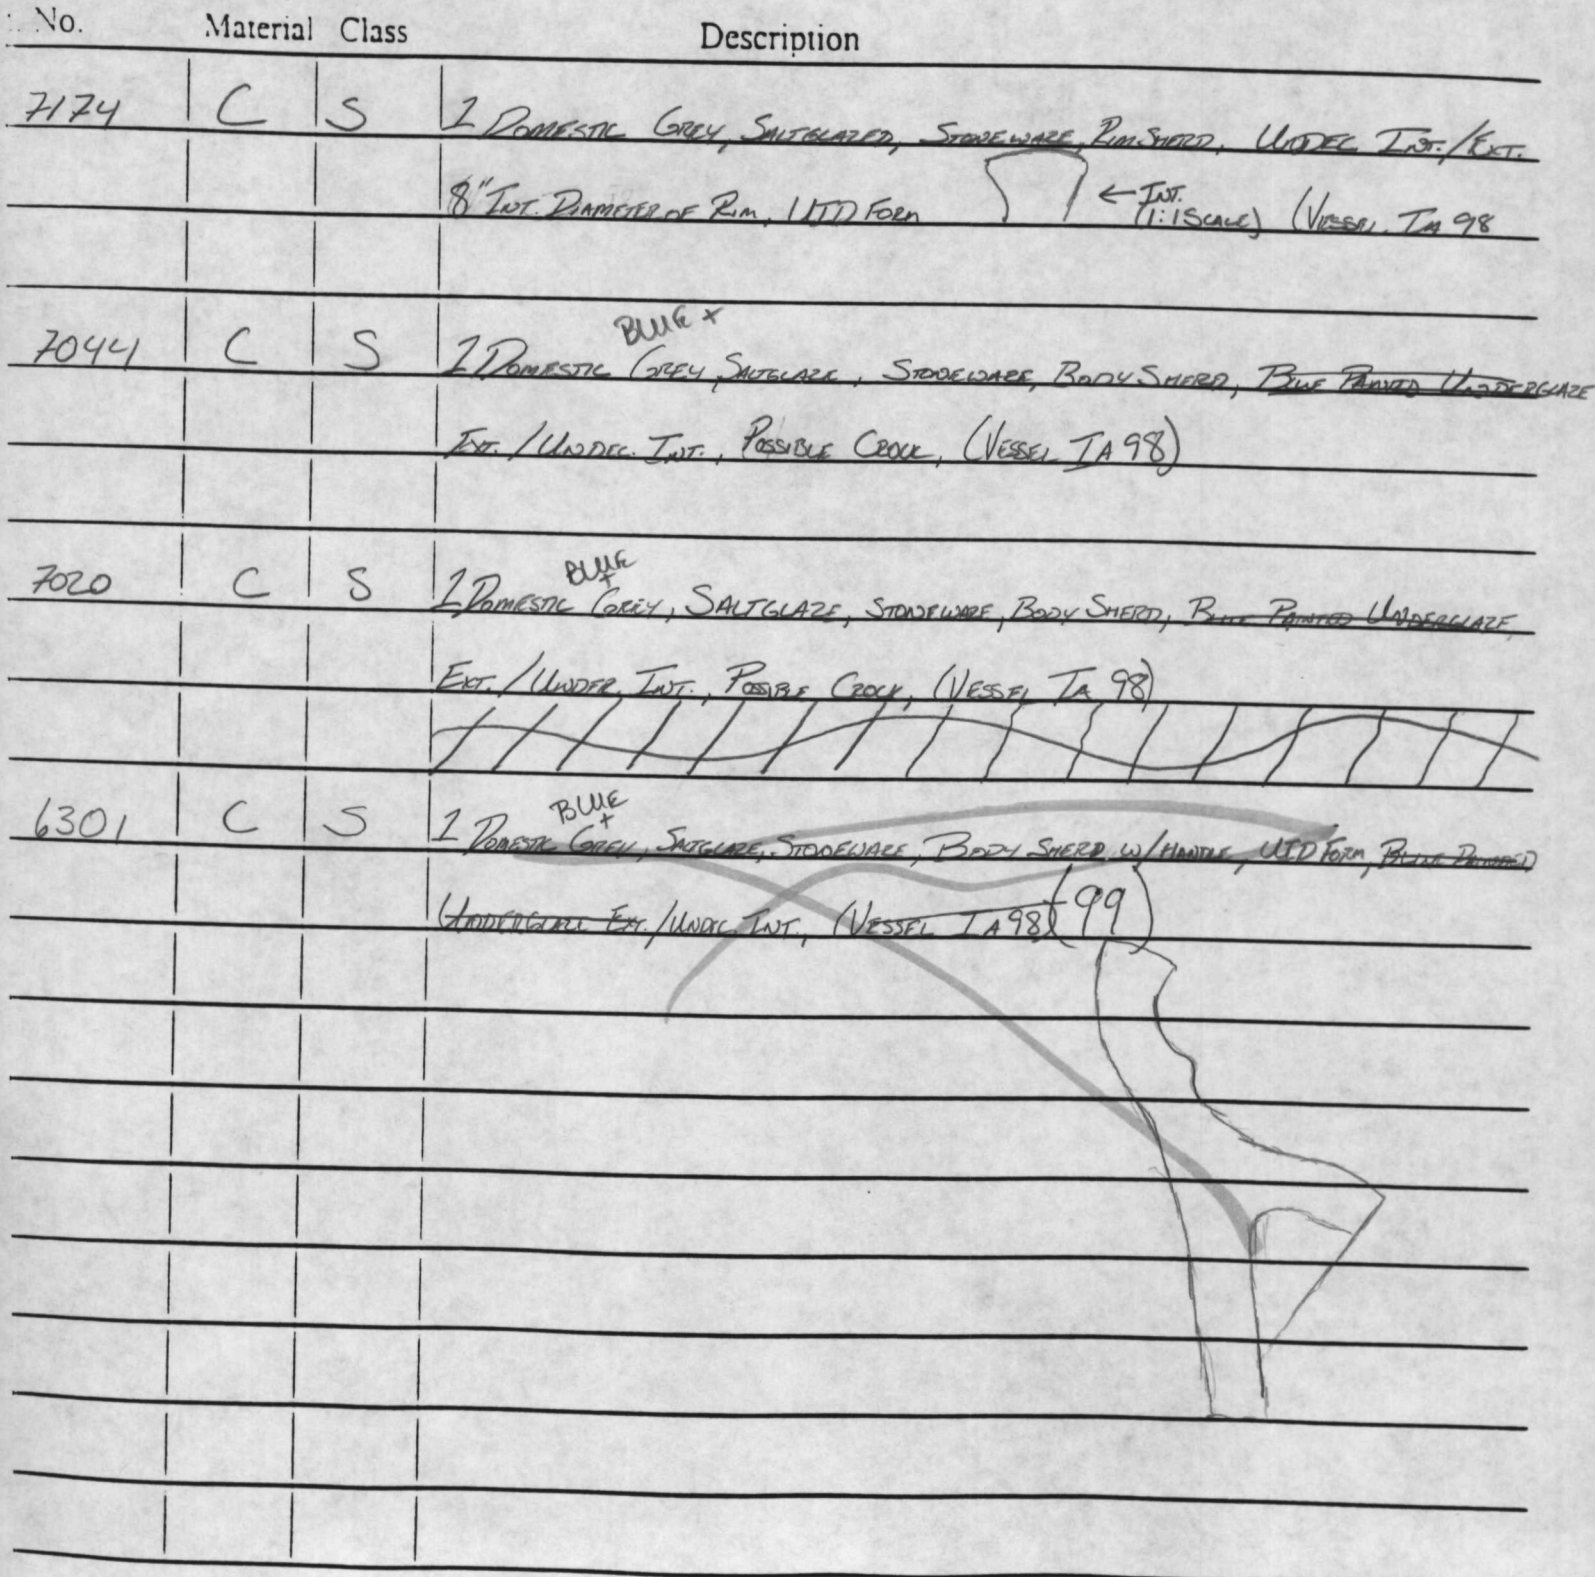 No. Material Class Description
7174 C S 1 DOMESTIC GREY, SALTGLAZED, STONEWARE, RIM SHERD, UNDEC INT./EXT.
8" INT. DIAMETER OF RIM, UID FORM ← INT. (VESSEL IA 98
(1:1 SCALE)
BLUE +
7044 C S 1 DOMESTIC GREY, SALTGLAZE, STONEWARE, BODY SHERD, BLUE PAINTED UNDERGLAZE
EXT. / UNDEC. INT., POSSIBLE CROCK, (VESSEL IA 98)
BLUE
+
7020 C S 1 DOMESTIC GREY, SALTGLAZE, STONEWARE, BODY SHERD, BLUE PAINTED UNDERGLAZE,
EXT. / UNDER. INT., POSSIBLE CROCK, (VESSEL IA 98)
BLUE
+
6301 C S 1 DOMESTIC GREY, SALTGLAZE, STONEWARE, BODY SHERD W/ HANDLE, UID FORM, BLUE PAINTED
UNDERGLAZE EXT. / UNDEC INT., (VESSEL IA 98) (99)